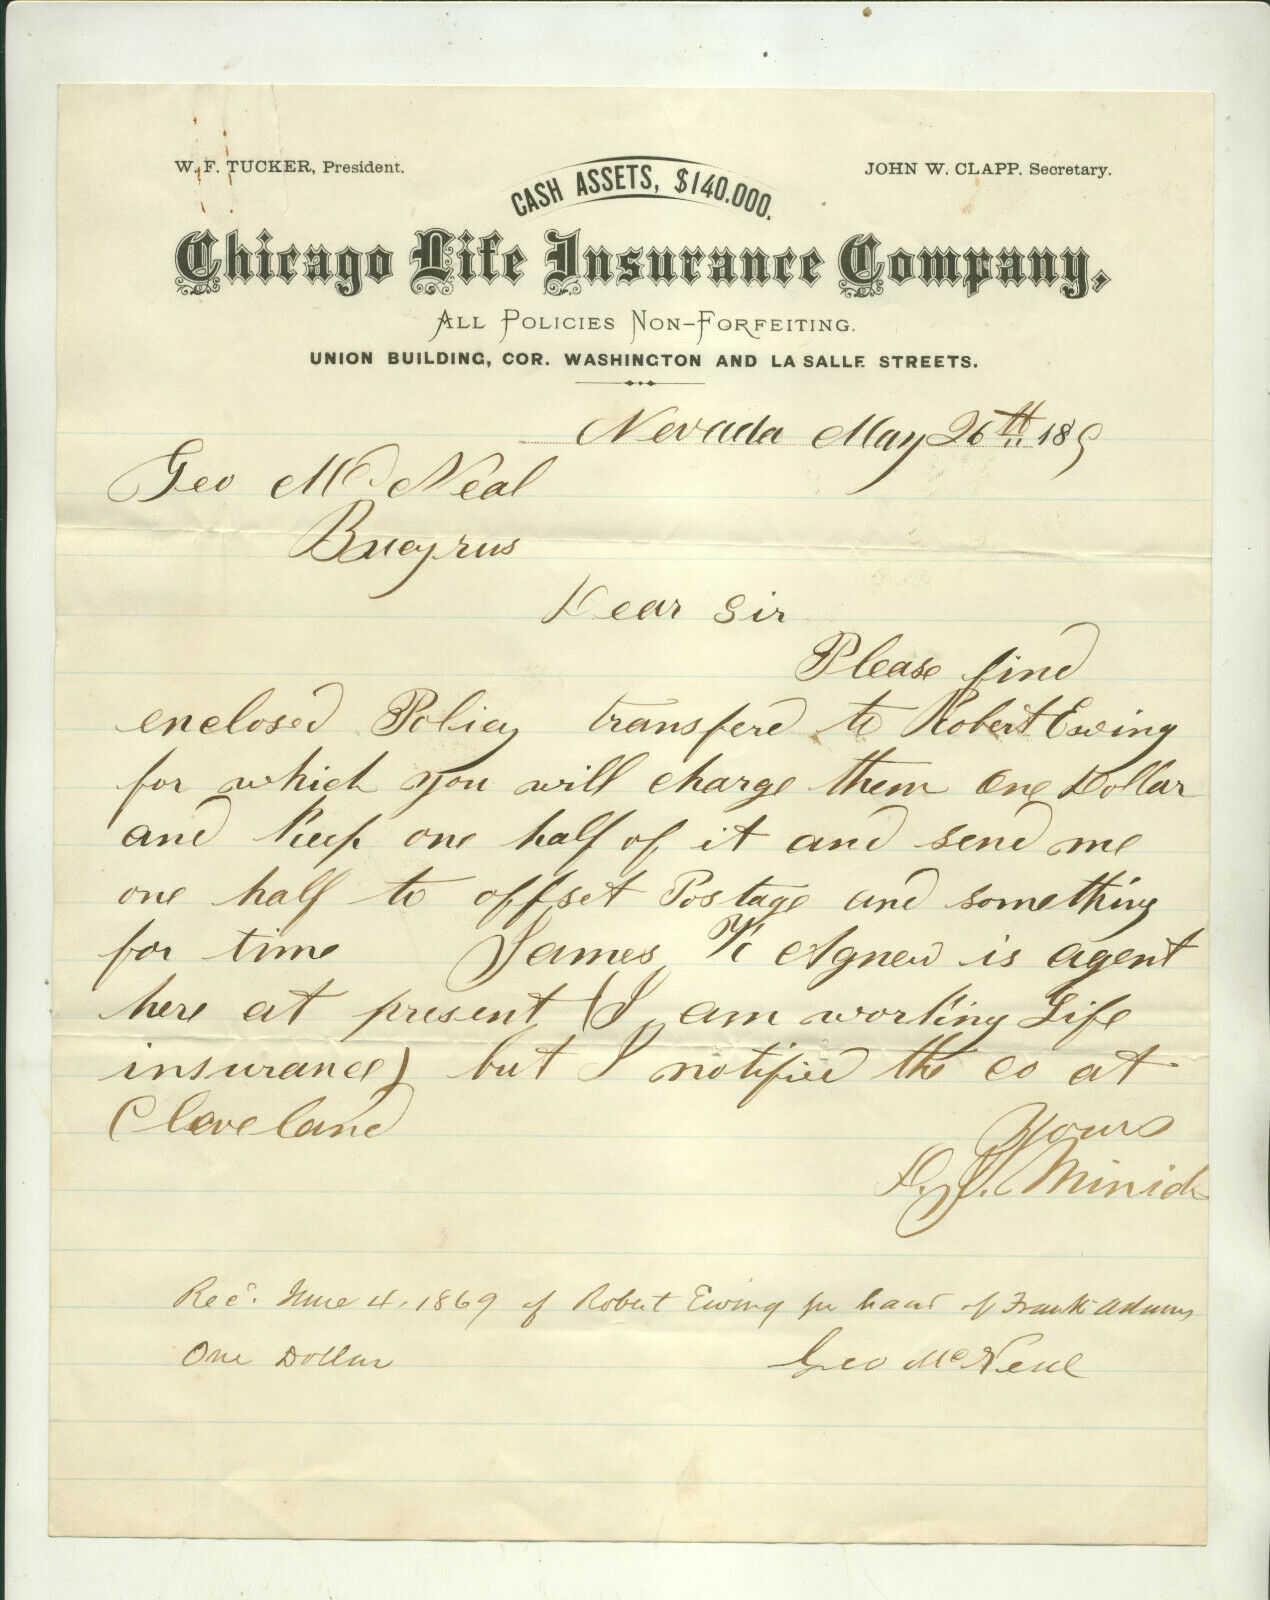 W. F. TUCKER, President.
JOHN W. CLAPP. Secretary.
CASH ASSETS, $140.000.
Chicago Life Insurance Company,
ALL POLICIES NON-FORFEITING.
UNION BUILDING, COR. WASHINGTON AND LA SALLE STREETS.
Nevada May 26th 18 9
Geo McNeal
Bucyrus
Dear Sir
Please find
enclosed Policy transferd to Robert Ewing
for which you will charge them One Dollar
and Keep one half of it and send me
one half to offset Postage and something
for time James K Agnew is agent
here at present (I am working Life
insurance) but I notified the co at
Cleveland
Yours
D. J. Minich
Rec. June 4. 1869 of Robert Ewing per hand of Frank Adams
One Dollar
Geo McNeal